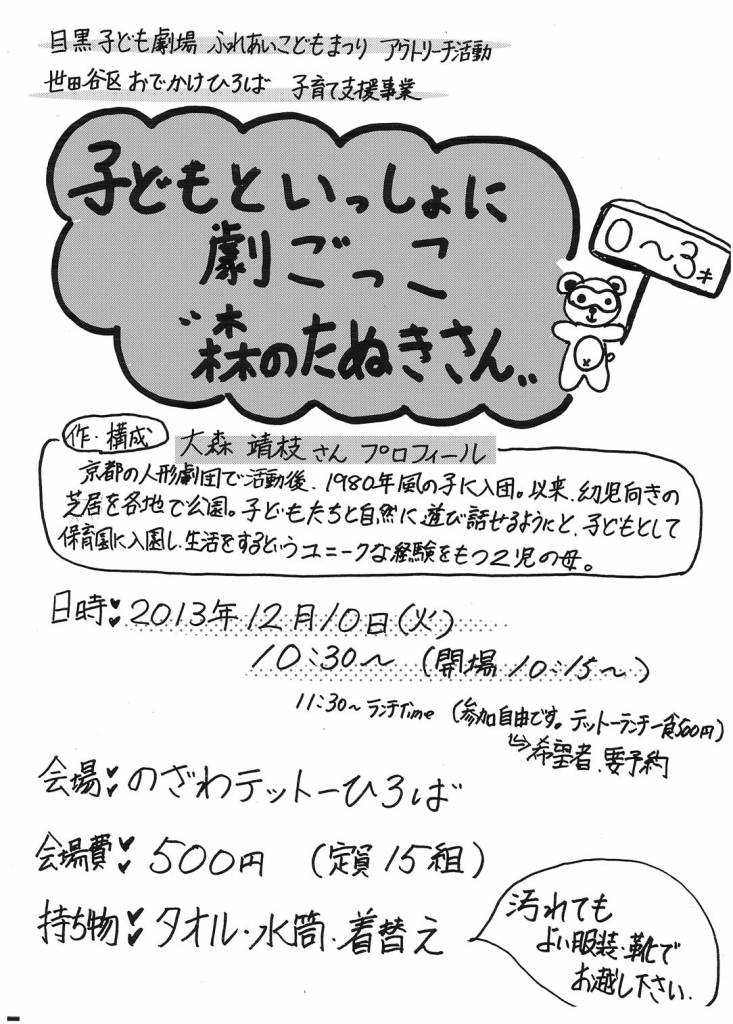 目黒子ども劇場 ふれあいこどもまつり アウトリーチ活動
世田谷区おでかけひろば 子育て支援事業
子どもといっしょに
劇ごっこ
"森のたぬきさん"
0〜3才
作・構成 大森 靖枝さん プロフィール
京都の人形劇団で活動後、1980年風の子に入団。以来、幼児向きの
芝居を各地で公園。子どもたちと自然に遊び話せるようにと、子どもとして
保育園に入園し、生活をするというユニークな経験をもつ2児の母。
日時 2013年12月10日(火)
10:30〜 (開場10:15〜)
11:30〜ランチTime (参加自由です。テットーランチ一食500円)
⇨希望者、要予約
会場 のざわテットーひろば
会場費 500円 (定員15組)
持ち物 タオル・水筒・着替え
汚れても
よい服装・靴で
お越し下さい。